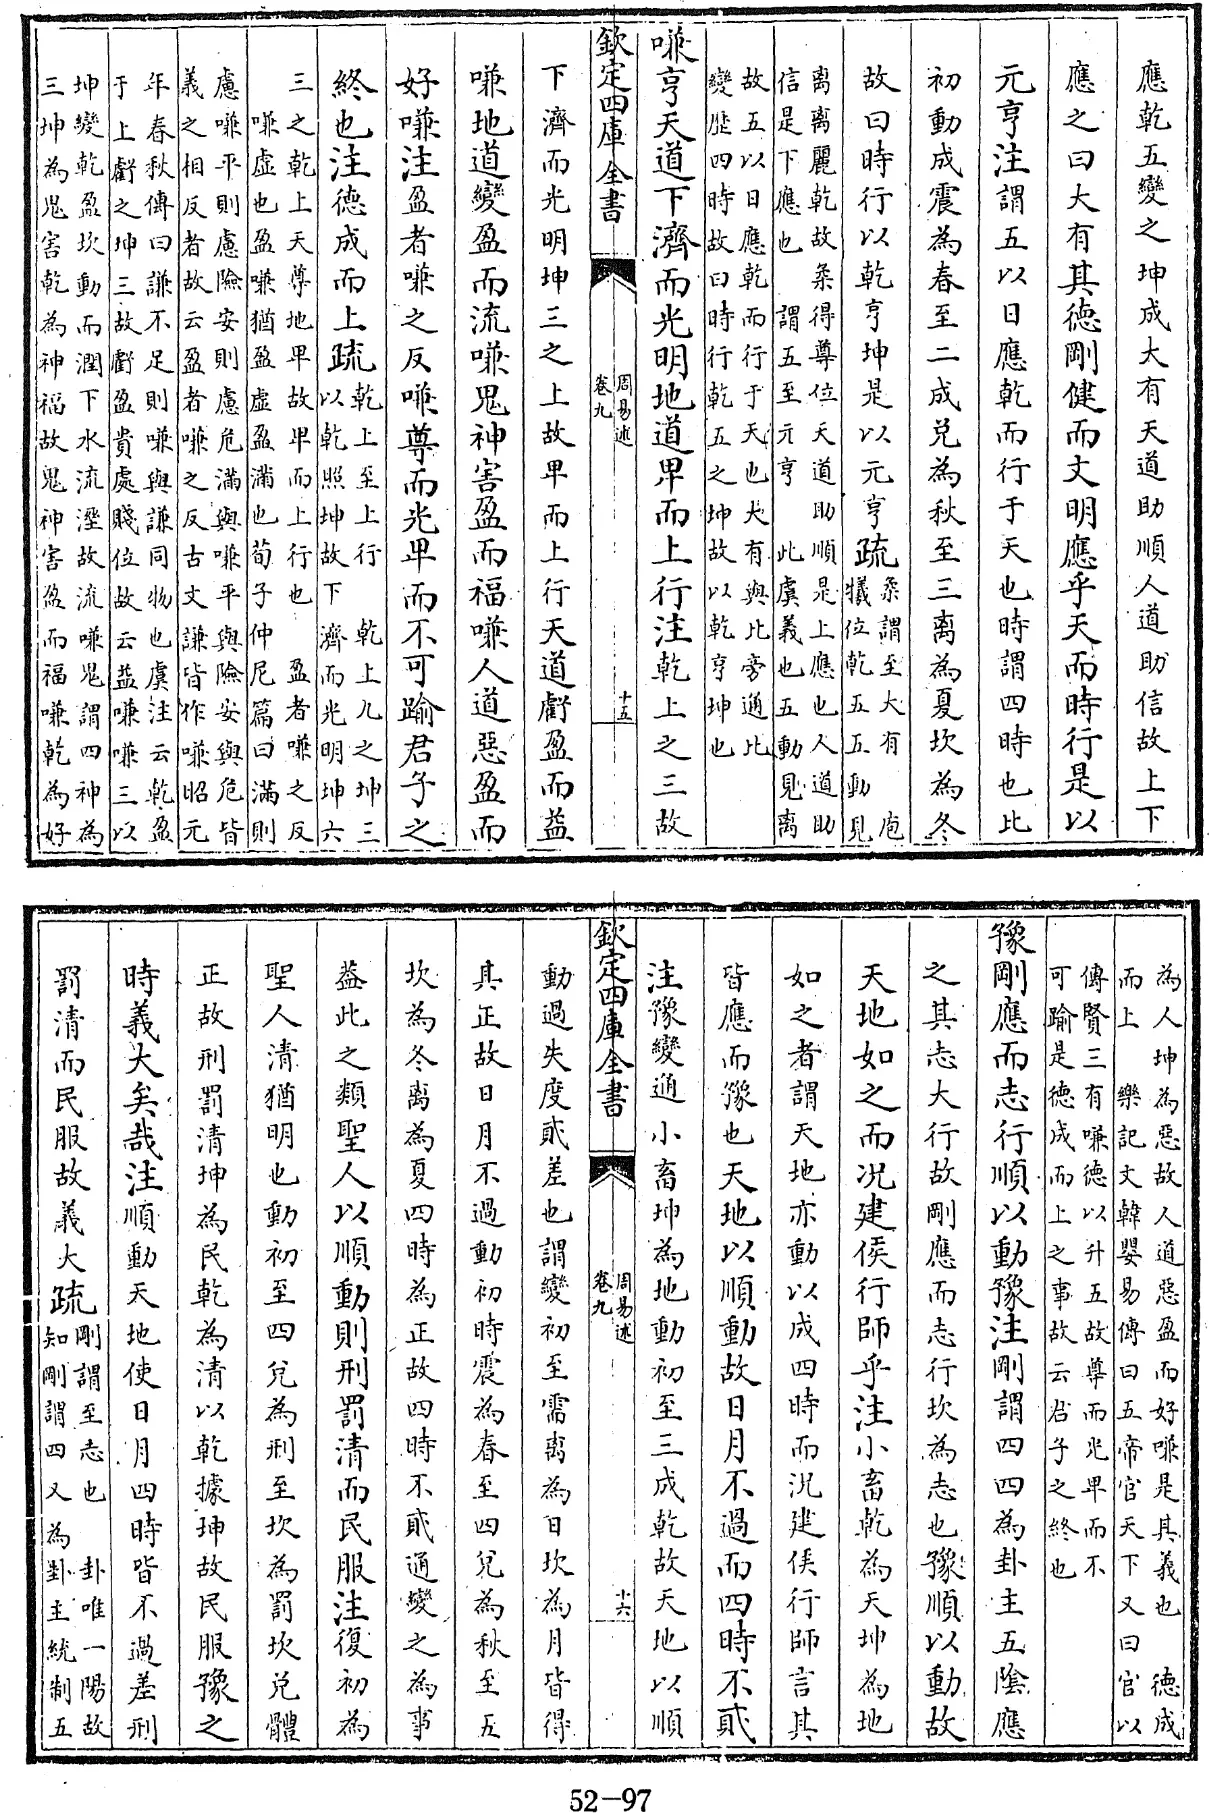 應乾五變之坤成大有天道助順人道助信故上下
應之曰大有其德剛健而文明應乎天而時行是以
元亨注謂五以日應乾而行于天也時謂四時也比
初動成震為春至二成兌為秋至三离為夏坎為冬
故曰時行以乾亨坤是以元亨疏
柔謂至大有 庖
犧位乾五五動見
离离麗乾故柔得尊位天道助順是上應也人道助
信是下應也 謂五至元亨 此虞義也五動見离
故五以日應乾而行于天也大有與比旁通比
變歷四時故曰時行乾五之坤故以乾亨坤也
嗛亨天道下濟而光明地道卑而上行注乾上之三故
欽定四庫全書
周易述
卷九
十五
下濟而光明坤三之上故卑而上行天道虧盈而益
嗛地道變盈而流嗛鬼神害盈而福嗛人道惡盈而
好嗛注盈者嗛之反嗛尊而光卑而不可踰君子之
終也注德成而上疏
乾上至上行 乾上九之坤三
以乾照坤故下濟而光明坤六
三之乾上天尊地卑故卑而上行也 盈者嗛之反
嗛虛也盈嗛猶盈虛盈滿也荀子仲尼篇曰滿則
慮嗛平則慮險安則慮危滿與嗛平與險安與危皆
義之相反者故云盈者嗛之反古文謙皆作嗛昭元
年春秋傳曰謙不足則嗛與謙同物也虞注云乾盈
于上虧之坤三故虧盈貴處賤位故云益嗛嗛三以
坤變乾盈坎動而潤下水流溼故流嗛鬼謂四神為
三坤為鬼害乾為神福故鬼神害盈而福嗛乾為好
為人坤為惡故人道惡盈而好嗛是其義也 德成
而上 樂記文韓嬰易傳曰五帝官天下又曰官以
傳賢三有嗛德以升五故尊而光卑而不
可踰是德成而上之事故云君子之終也
豫剛應而志行順以動豫注剛謂四四為卦主五陰應
之其志大行故剛應而志行坎為志也豫順以動故
天地如之而況建侯行師乎注小畜乾為天坤為地
如之者謂天地亦動以成四時而況建侯行師言其
皆應而豫也天地以順動故日月不過而四時不貳
注豫變通小畜坤為地動初至三成乾故天地以順
欽定四庫全書
周易述
卷九
十六
動過失度貳差也謂變初至需离為日坎為月皆得
其正故日月不過動初時震為春至四兌為秋至五
坎為冬离為夏四時為正故四時不貳通變之為事
葢此之類聖人以順動則刑罰清而民服注復初為
聖人清猶明也動初至四兌為刑至坎為罰坎兌體
正故刑罰清坤為民乾為清以乾據坤故民服豫之
時義大矣哉注順動天地使日月四時皆不過差刑
罰清而民服故義大疏
剛謂至志也 卦唯一陽故
知剛謂四又為卦主統制五
52-97